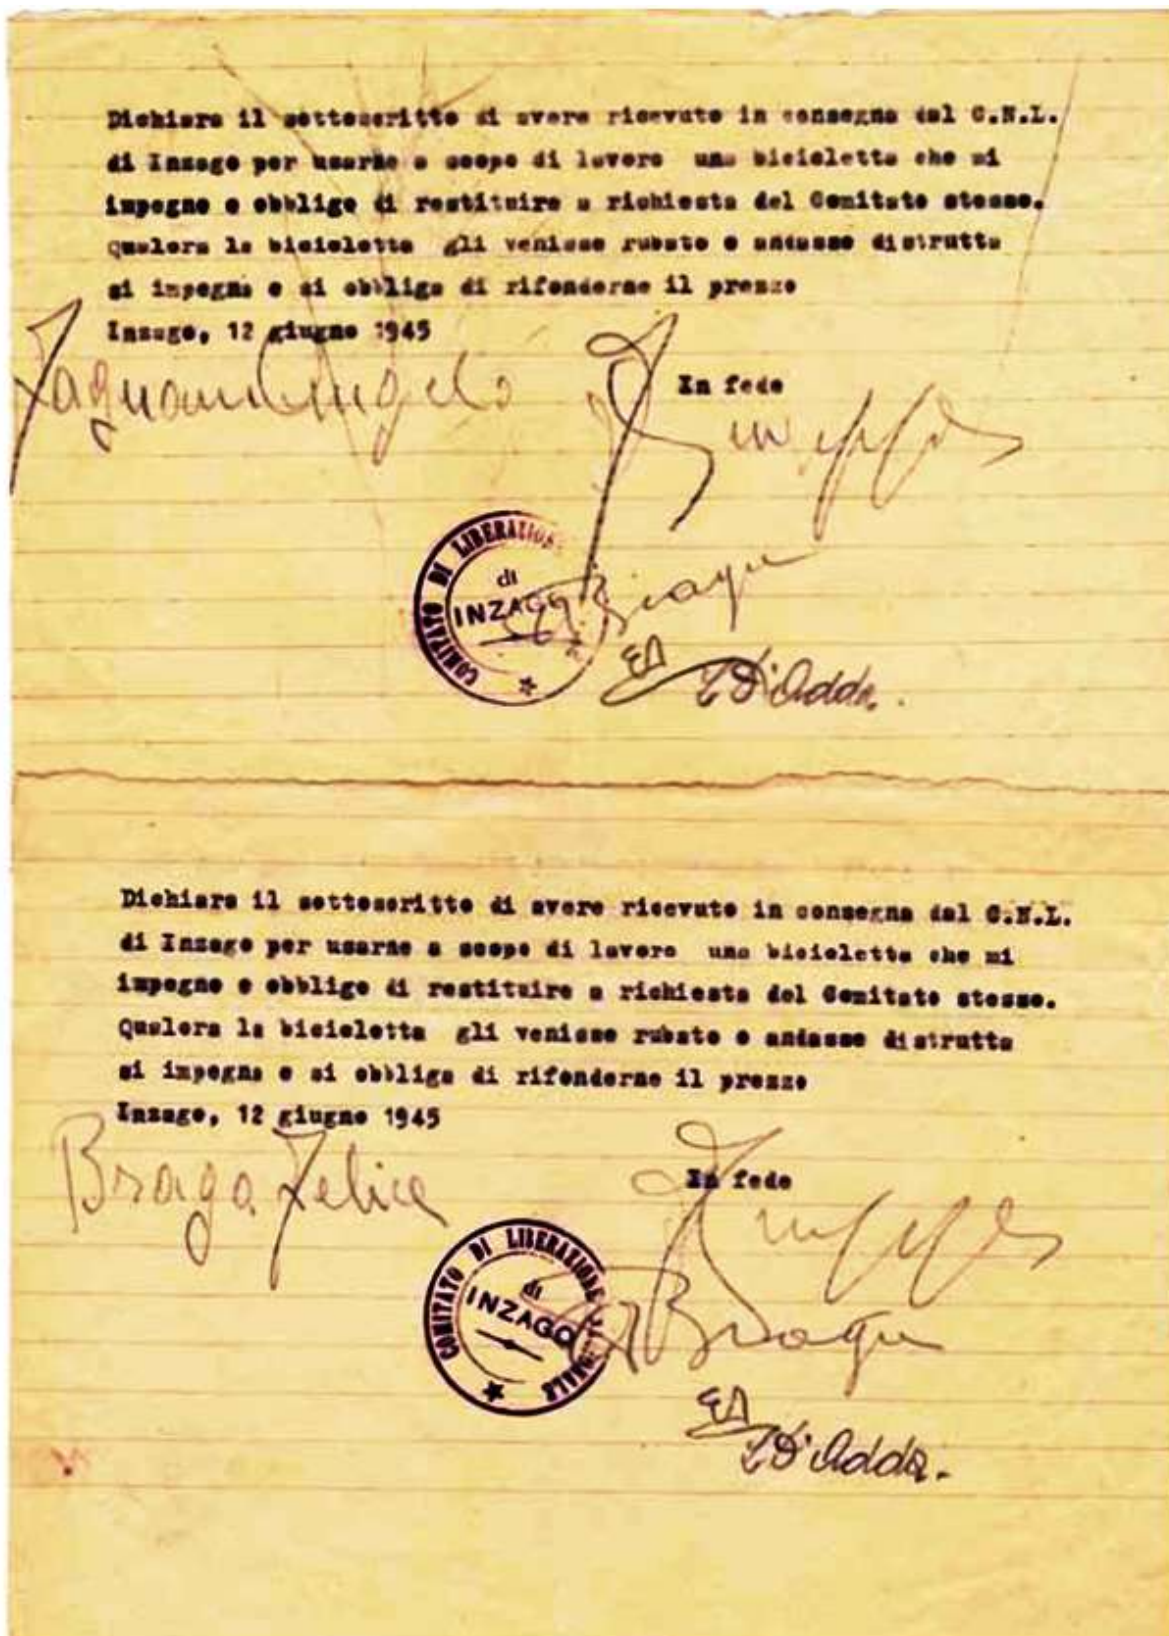 Dichiara il sottoscritto di avere ricevuto in consegna dal C.N.L.
di Inzago per usarne a scopo di lavoro una bicicletta che mi
impegno e obbligo di restituire a richiesta del Comitato stesso.
Qualora la bicicletta gli venisse rubato o andasse distrutta
si impegna e si obbliga di rifonderne il prezzo
Inzago, 12 giugno 1945
Angelo
In fede
COMITATO DI LIBERAZIONE
di
INZAGO
D'Adda.
Dichiara il sottoscritto di avere ricevuto in consegna dal C.N.L.
di Inzago per usarne a scopo di lavoro una bicicletta che mi
impegno e obbligo di restituire a richiesta del Comitato stesso.
Qualora la bicicletta gli venisse rubato o andasse distrutta
si impegna e si obbliga di rifonderne il prezzo
Inzago, 12 giugno 1945
Braga Felice
In fede
COMITATO DI LIBERAZIONE NAZIONALE
di
INZAGO
D'Adda.